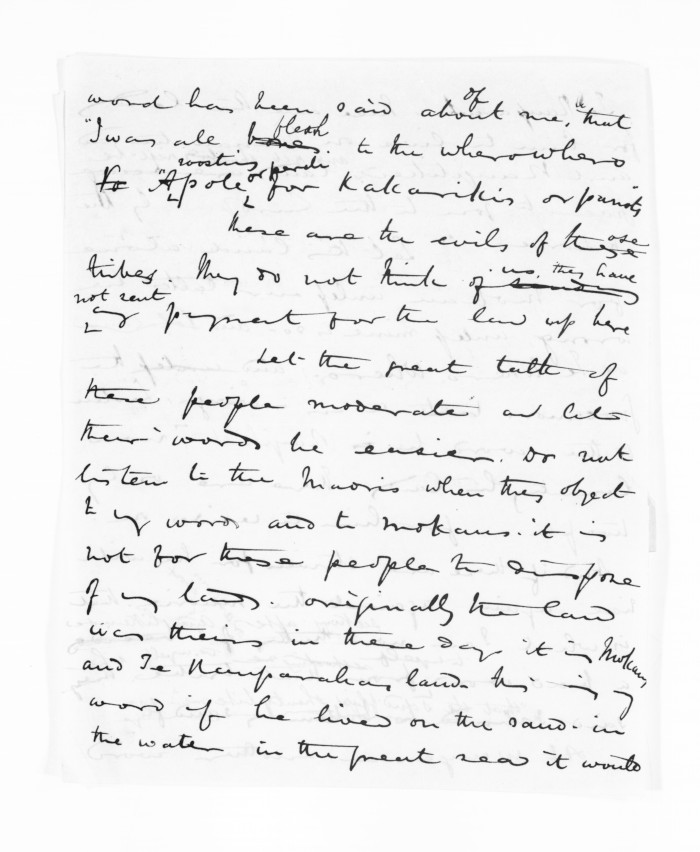 word has been said about of me, "that
"I was all bones flesh. to the wherowhero
To "A pole" roasting or perch for Kakarikis or parrots
These are the evils of these those
tribes They do not think of us. they have
not sent any payment for the land up here
Let the great talk of
these people moderate and let
their words be easier. Do not
listen to the Maoris when they object
to my words and to Mokaus. it is
not for these people to dispose
of my lands. originally the land
was theirs in these days it is Mokaus
and Te Rauparahas land. this is my
word if he lived on the sand. in
the water in the great sea it would